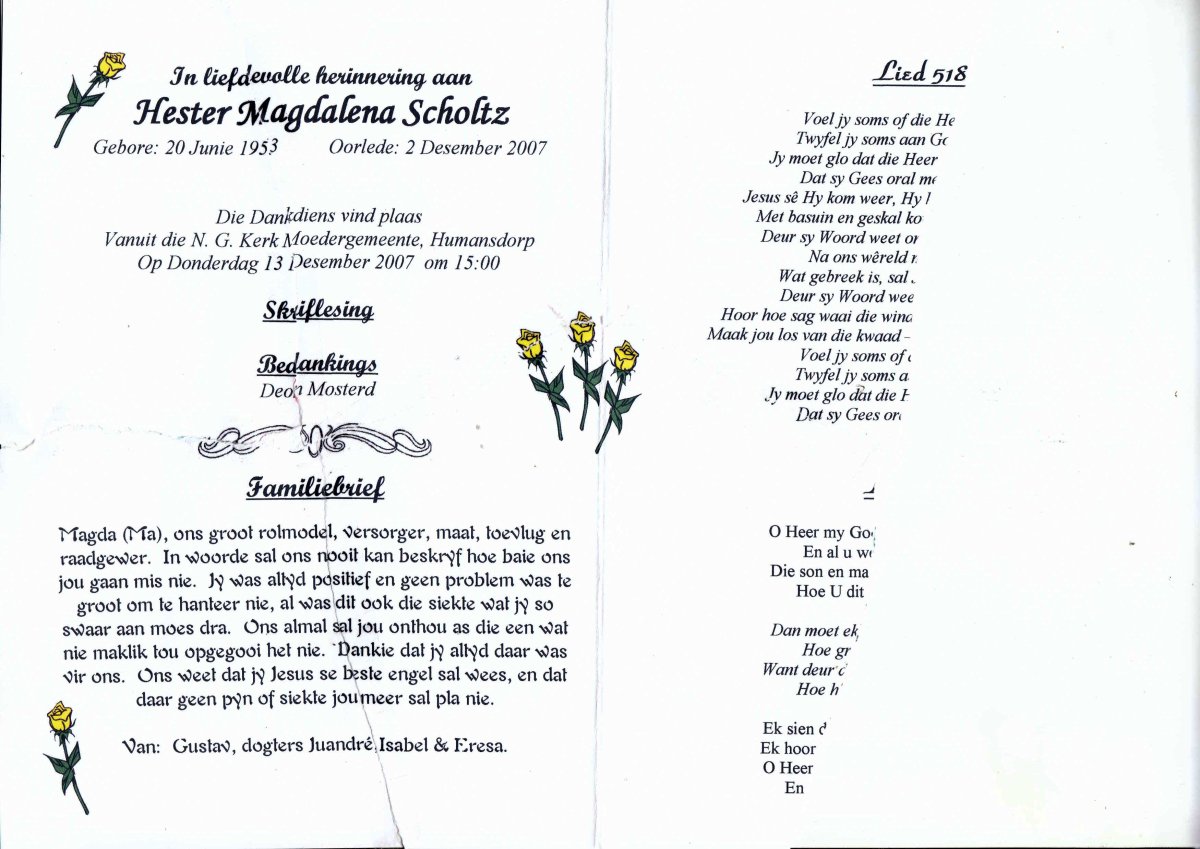 In liefdevolle herinnering aan
Hester Magdalena Scholtz
Gebore: 20 Junie 1953 Oorlede: 2 Desember 2007
Die Dankdiens vind plaas
Vanuit die N. G. Kerk Moedergemeente, Humansdorp
Op Donderdag 13 Desember 2007 om 15:00
Skriflesing
Bedankings
Deon Mosterd
Familiebrief
Magda (Ma), ons groot rolmodel, versorger, maat, toevlug en
raadgewer. In woorde sal ons nooit kan beskryf hoe baie ons
jou gaan mis nie. Jy was altyd positief en geen problem was te
groot om te hanteer nie, al was dit ook die siekte wat jy so
swaar aan moes dra. Ons almal sal jou onthou as die een wat
nie maklik tou opgegooi het nie. Dankie dat jy altyd daar was
vir ons. Ons weet dat jy Jesus se beste engel sal wees, en dat
daar geen pyn of siekte jou meer sal pla nie.
Van: Gustav, dogters Juandré, Isabel & Eresa.
Lied 518
Voel jy soms of die He
Twyfel jy soms aan Go
Jy moet glo dat die Heer
Dat sy Gees oral me
Jesus sê Hy kom weer, Hy
Met basuin en geskal ko
Deur sy Woord weet on
Na ons wêreld
Wat gebreek is, sal
Deur sy Woord wee
Hoor hoe sag waai die wind
Maak jou los van die kwaad –
Voel jy soms of
Twyfel jy soms a
Jy moet glo dat die H
Dat sy Gees ora
O Heer my God
En al u we
Die son en ma
Hoe U dit
Dan moet ek
Hoe gr
Want deur
Hoe h
Ek sien d
Ek hoor
O Heer
En